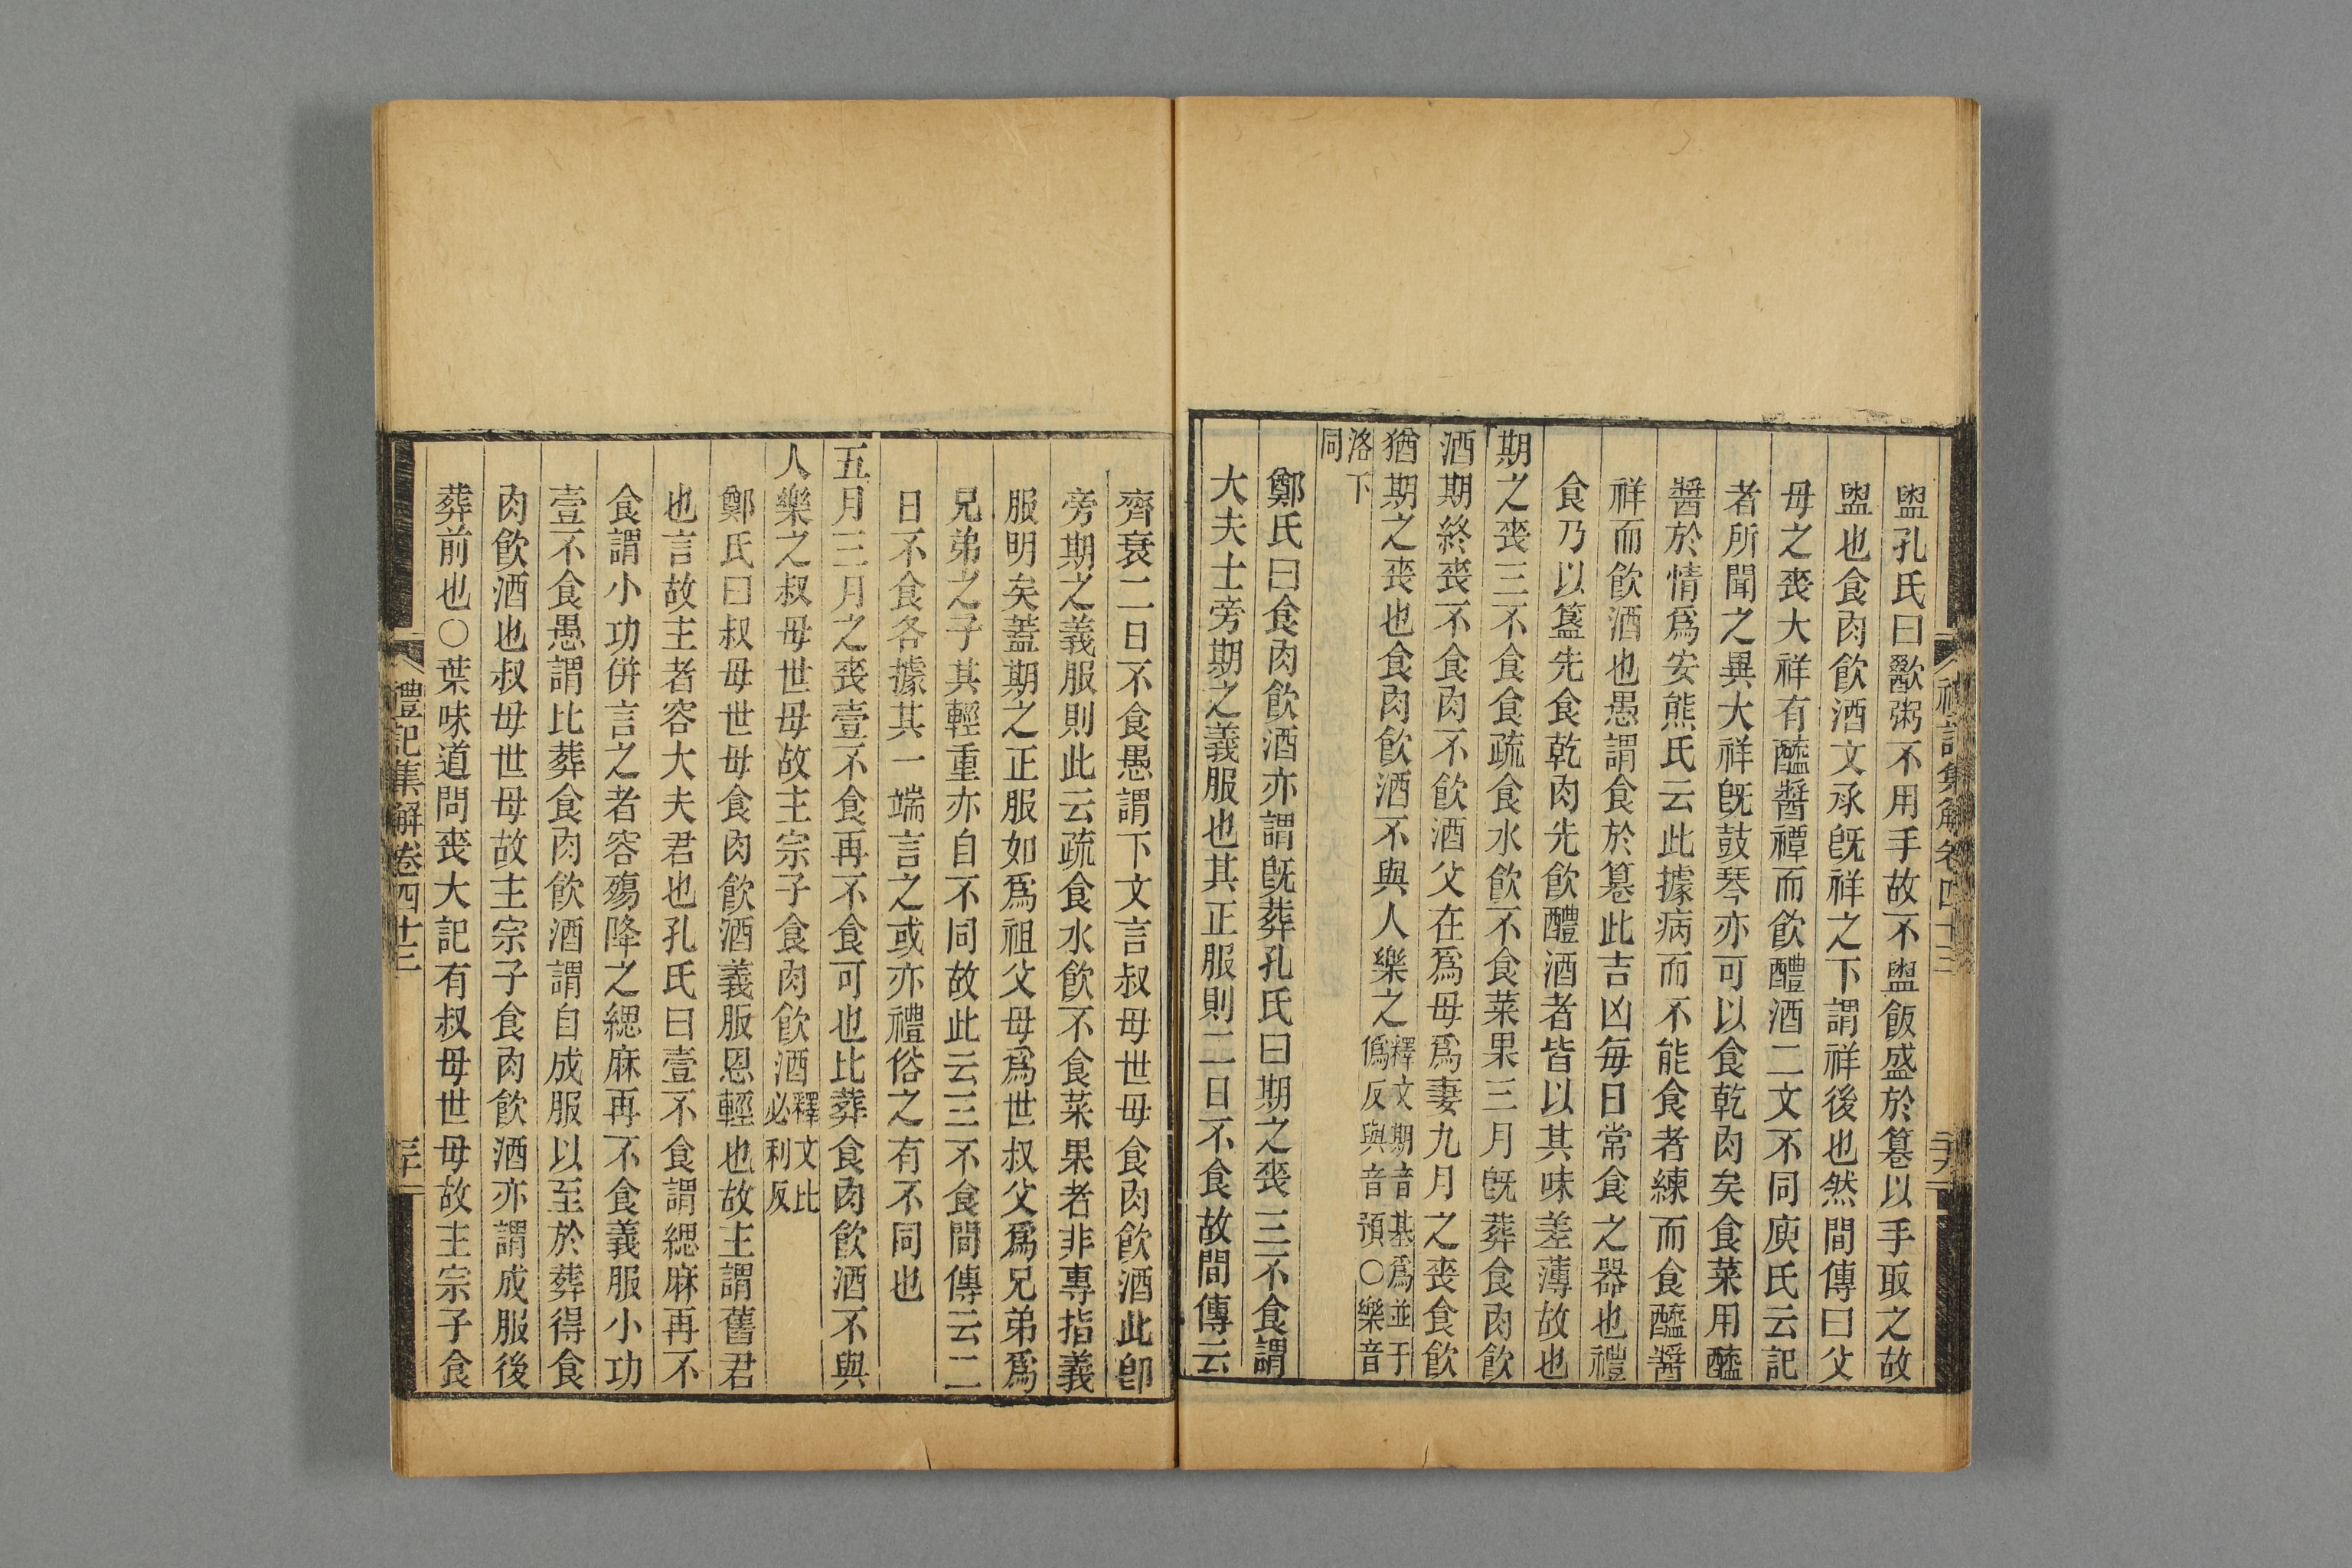 盥孔氏曰歠粥不用手故不盥飯盛於篹以手取之故
盥也食肉飲酒文承旣祥之下謂祥後也然間傳曰父
母之喪大祥有醯醬禫而飲醴酒二文不同庾氏云記
者所聞之異大祥旣鼓琴亦可以食乾肉矣食菜用醯
醬於情爲安熊氏云此據病而不能食者練而食醯醬
祥而飲酒也愚謂食於篹此吉凶每日常食之器也禮
食乃以簋先食乾肉先飲醴酒者皆以其味差薄故也
期之喪三不食食疏食水飲不食菜果三月旣葬食肉飲
酒期終喪不食肉不飲酒父在爲母爲妻九月之喪食飲
猶期之喪也食肉飲酒不與人樂之釋文期音基爲並于僞反與音預○樂音
洛下同
鄭氏曰食肉飲酒亦謂旣葬孔氏曰期之喪三不食謂
大夫士旁期之義服也其正服則二日不食故間傳云
禮記集解卷四十三
齊衰二日不食愚謂下文言叔母世母食肉飲酒此卽
旁期之義服則此云疏食水飲不食菜果者非專指義
服明矣蓋期之正服如爲祖父母爲世叔父爲兄弟爲
兄弟之子其輕重亦自不同故此云三不食間傳云二
日不食各據其一端言之或亦禮俗之有不同也
五月三月之喪壹不食再不食可也比葬食肉飲酒不與
人樂之叔母世母故主宗子食肉飲酒釋文比必利反
鄭氏曰叔母世母食肉飲酒義服恩輕也故主謂舊君
也言故主者容大夫君也孔氏曰壹不食謂緦麻再不
食謂小功併言之者容殤降之緦麻再不食義服小功
壹不食愚謂比葬食肉飲酒謂自成服以至於葬得食
肉飲酒也叔母世母故主宗子食肉飲酒亦謂成服後
葬前也○葉味道問喪大記有叔母世母故主宗子食
禮記集解卷四十三